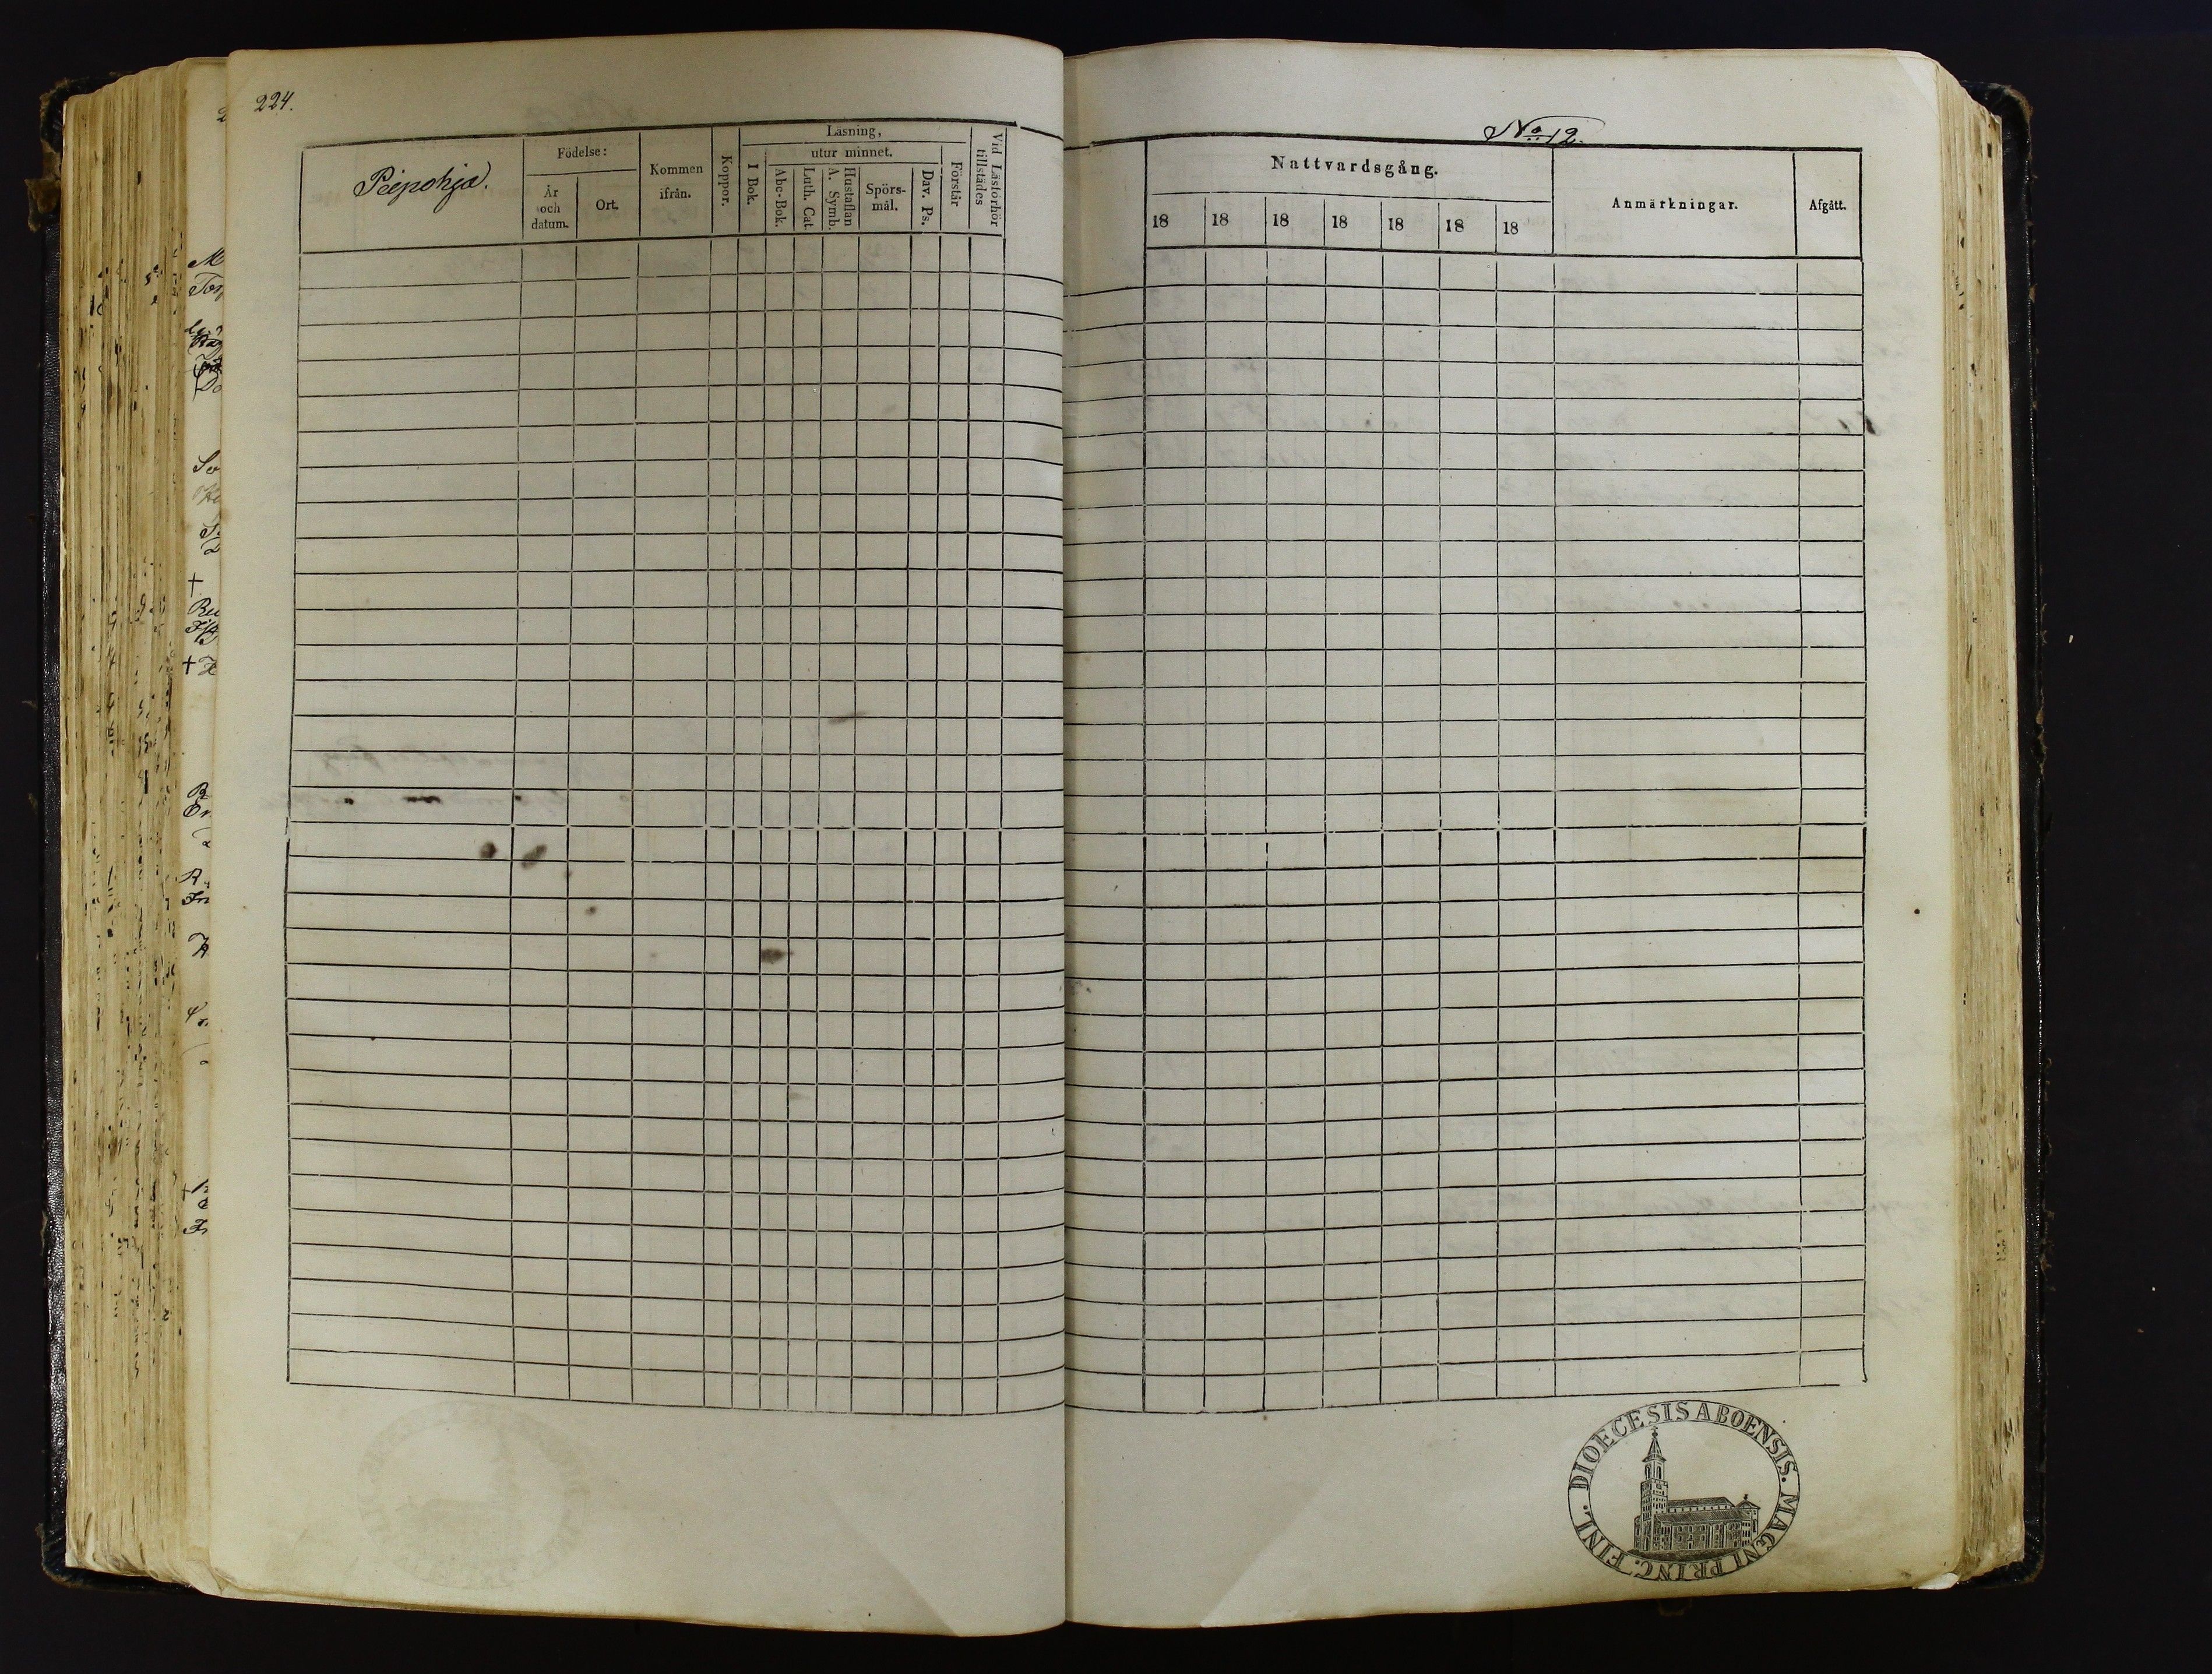 224.
Peipohja.
Födelse:
År och datum.
Ort.
Kommen ifrån.
Koppor.
Läsning,
I Bok.
utur minnet.
Abc-Bok.
Luth. Cat
Hustaflan
A. Symb.
Spörs-
mål.
Dav. Ps.
Förstår
Vid Läsförhör
tillstädes
No 12.
Nattvardsgång.
18 18 18 18 18 18 18
Anmärkningar.
Afgått.
DIOECESIS ABOENSIS. MAGNI PRINC. FINL.